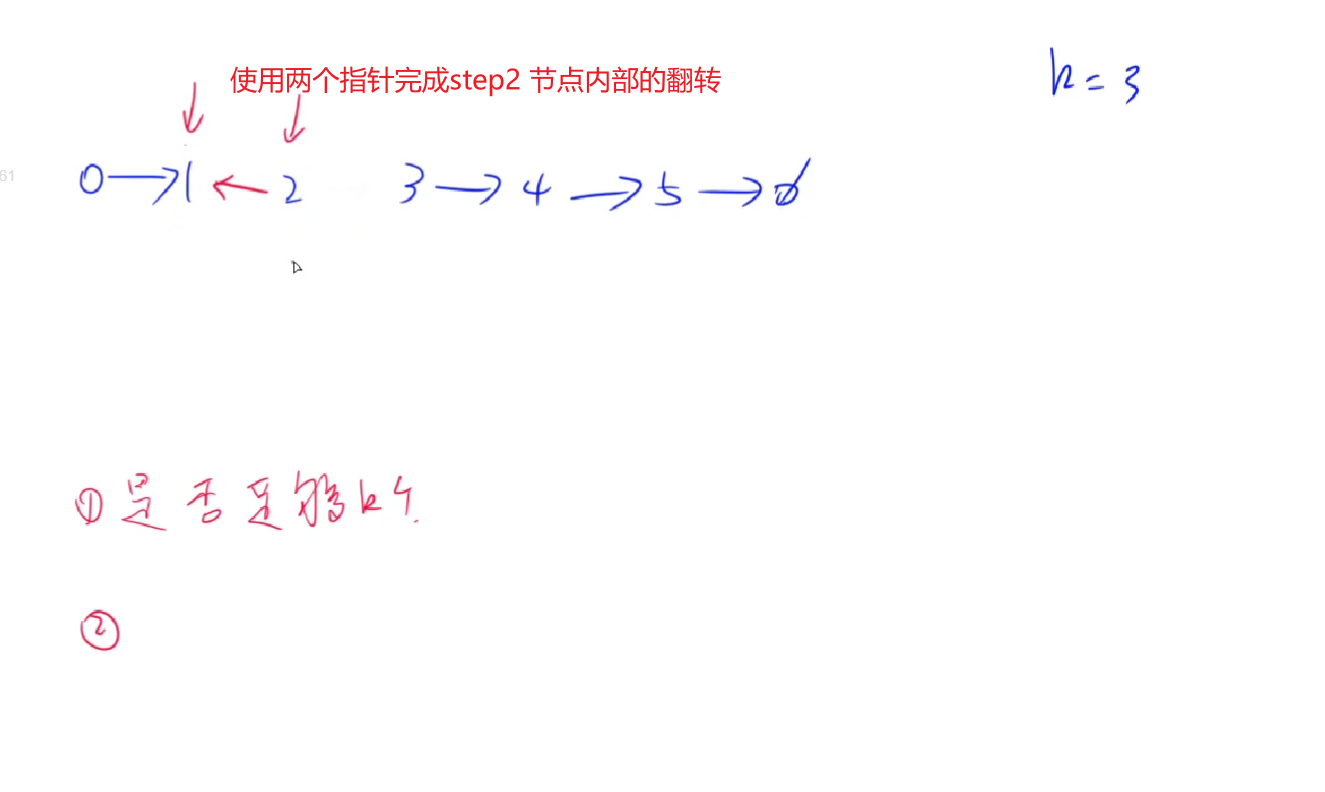 使用两个指针完成step2 节点内部的翻转
k = 3
61
0 → 1 ← 2 3 → 4 → 5 → ∅
① 是否足够k个.
②